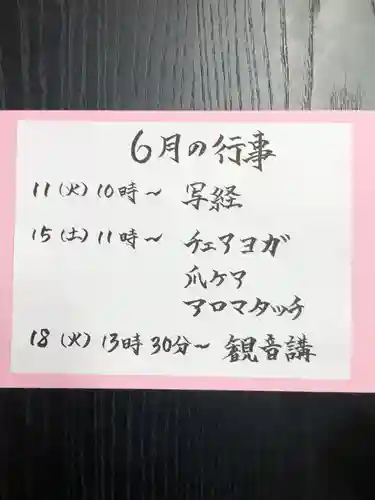 6月の行事
11(火)10時~ 写経
15(土)11時~ チェアヨガ
爪ケア
アロマタッチ
18(火)13時30分~ 観音講